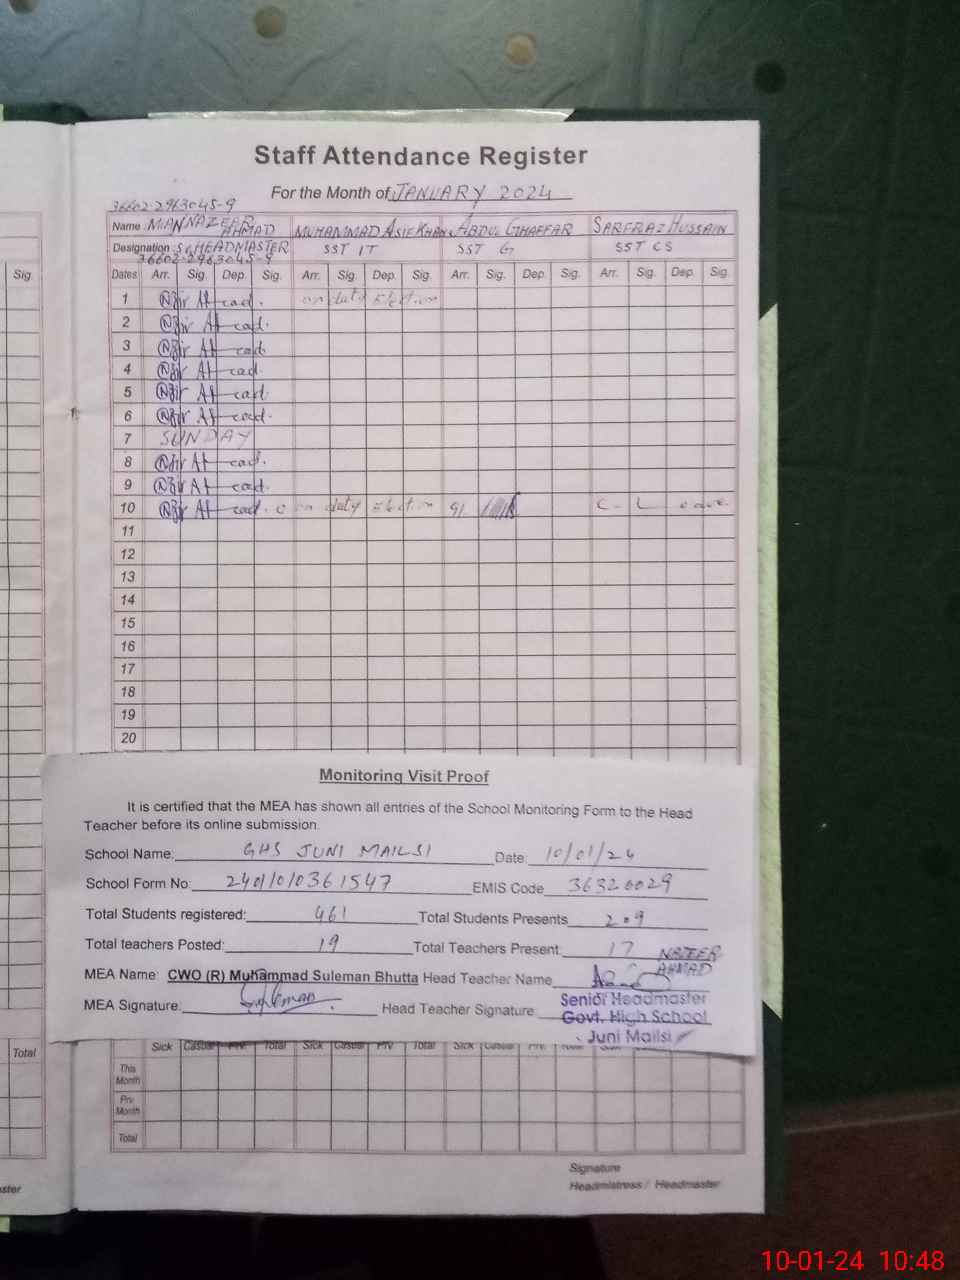 Staff Attendance Register
For the Month of JANUARY 2024
36602-2963045-9
Name MIAN NAZEER AHMAD MUHAMMAD ASIF KHAN ABDUL GHAFFAR SARFRAZ HUSSAIN
Designation Sr HEADMASTER SST IT SST G SST CS
36602-2963045-9
Sig. Dates Arr. Sig. Dep. Sig. Arr. Sig. Dep. Sig. Arr. Sig. Dep. Sig. Arr. Sig. Dep. Sig.
1 on duty Election
2
3
4
5
6
7 SUNDAY
8
9
10 on duty Election C. Leave
11
12
13
14
15
16
17
18
19
20
Monitoring Visit Proof
It is certified that the MEA has shown all entries of the School Monitoring Form to the Head
Teacher before its online submission.
School Name: GHS JUNI MAILSI Date: 10/01/24
School Form No: EMIS Code 36320029
Total Students registered: 461 Total Students Presents 209
Total teachers Posted: 19 Total Teachers Present: 17
NAZEER AHMAD
MEA Name: CWO (R) Muhammad Suleman Bhutta Head Teacher Name
MEA Signature: Head Teacher Signature:
Senior Headmaster
Govt. High School
Juni Mailsi
Total Sick Casual Prv. Total Sick Casual Prv Total Sick Casual Prv. Total
This Month
Prv. Month
Total
Signature
Headmistress / Headmaster
10-01-24 10:48